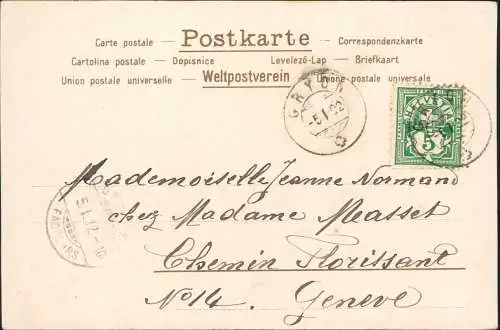 Carte postale — Postkarte — Correspondenzkarte
Cartolina postale — Dopisnice Levelező-Lap — Briefkaart
Union postale universelle — Weltpostverein — Unione postale universale
GRYON
-5.I.02
HELVETIA
5
Mademoiselle Jeanne Normand
chez Madame Masset
Chemin Florissant
No 14. Geneve